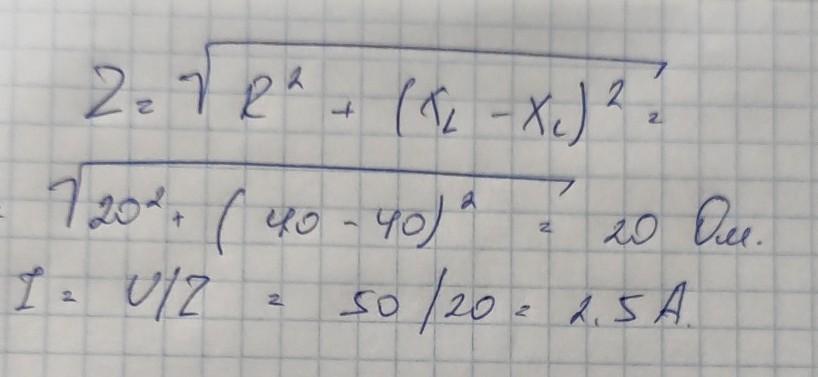 Z = √R² + (X_L - X_C)² =
√20² + (40 - 40)² = 20 Ом.
I = U/Z = 50/20 = 2.5 A.